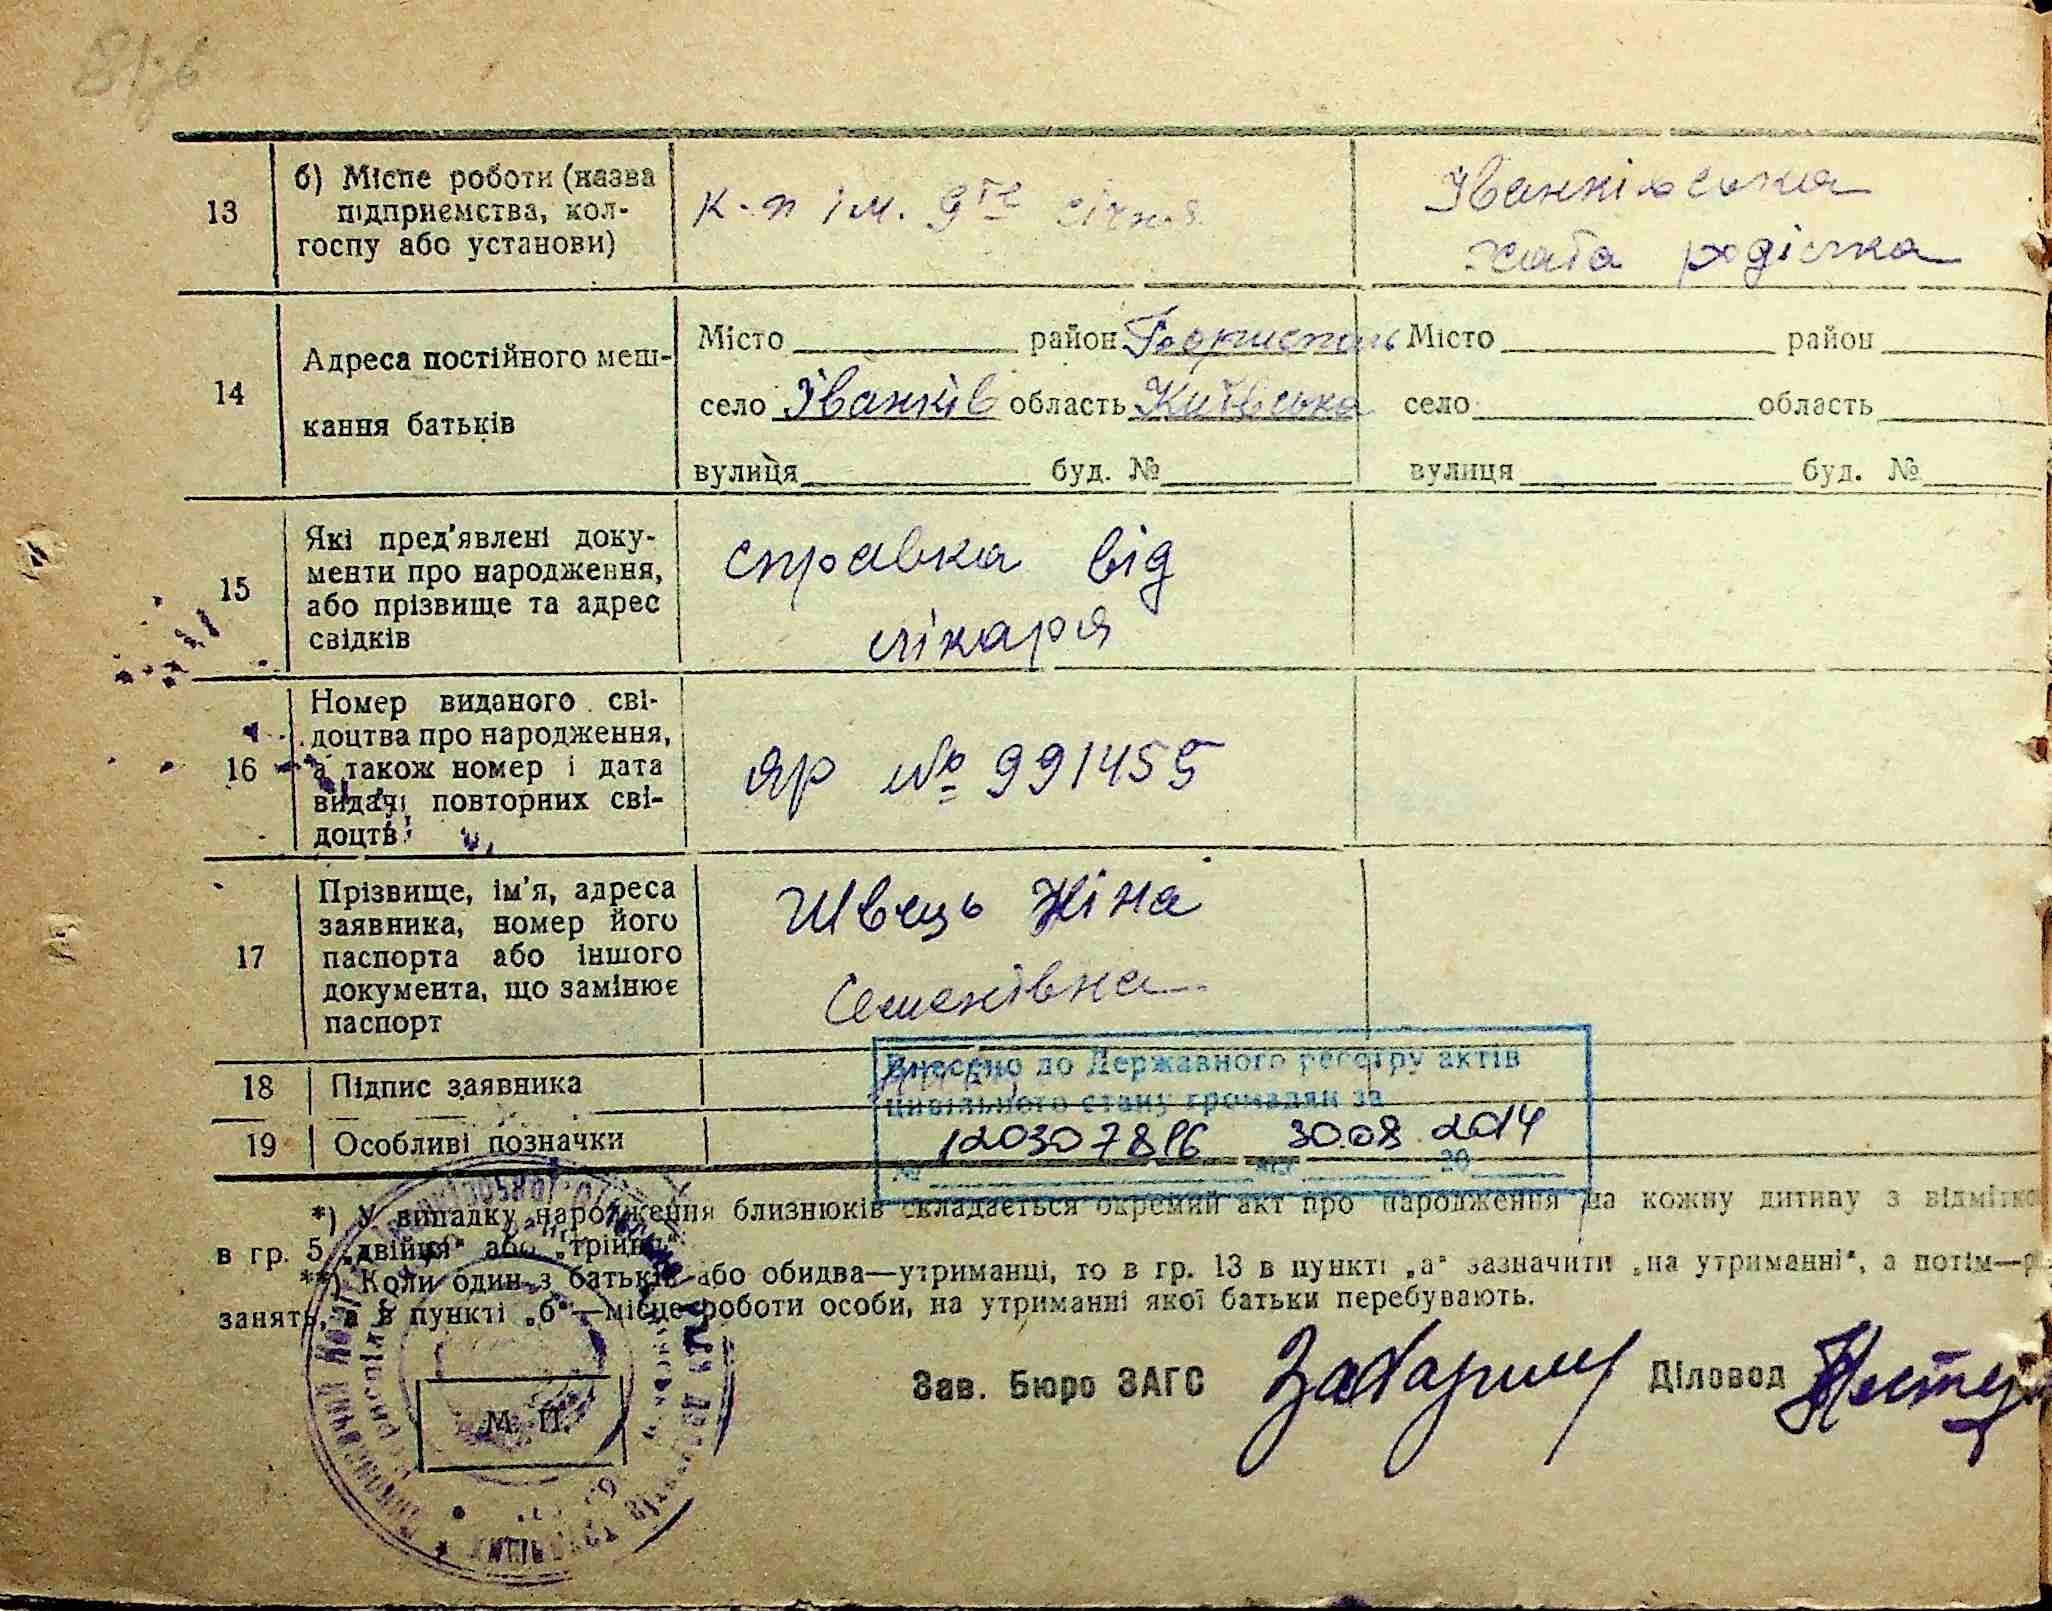 13
б) Місце роботи (назва
підприємства, кол-
госпу або установи)
к-п ім. 9те січня
Іванківська
хата роділка
14
Адреса постійного меш-
кання батьків
Місто район Бориспіль
село Іванків область Київська
вулиця буд. №
Місто район
село область
вулиця буд. №
15
Які пред'явлені доку-
менти про народження,
або прізвище та адрес
свідків
справка від
лікаря
16
Номер виданого сві-
доцтва про народження,
а також номер і дата
видачі повторних сві-
доцтв
яр № 991455
17
Прізвище, ім'я, адреса
заявника, номер його
паспорта або іншого
документа, що замінює
паспорт
Швець Ніна
Семенівна
18
Підпис заявника
Внесено до Державного реєстру актів
цивільного стану громадян за
19
Особливі позначки
№ 120307816 від 30.08.2014
20
*) У випадку народження близнюків складається окремий акт про народження на кожну дитину з відмітко
в гр. 5 „двійня“ або „трійня“.
**) Коли один з батьків або обидва—утриманці, то в гр. 13 в пункті „а“ зазначити „на утриманні“, а потім—р
занять, а в пункті „б“—місце роботи особи, на утриманні якої батьки перебувають.
Зав. Бюро ЗАГС
Діловод
М. П.